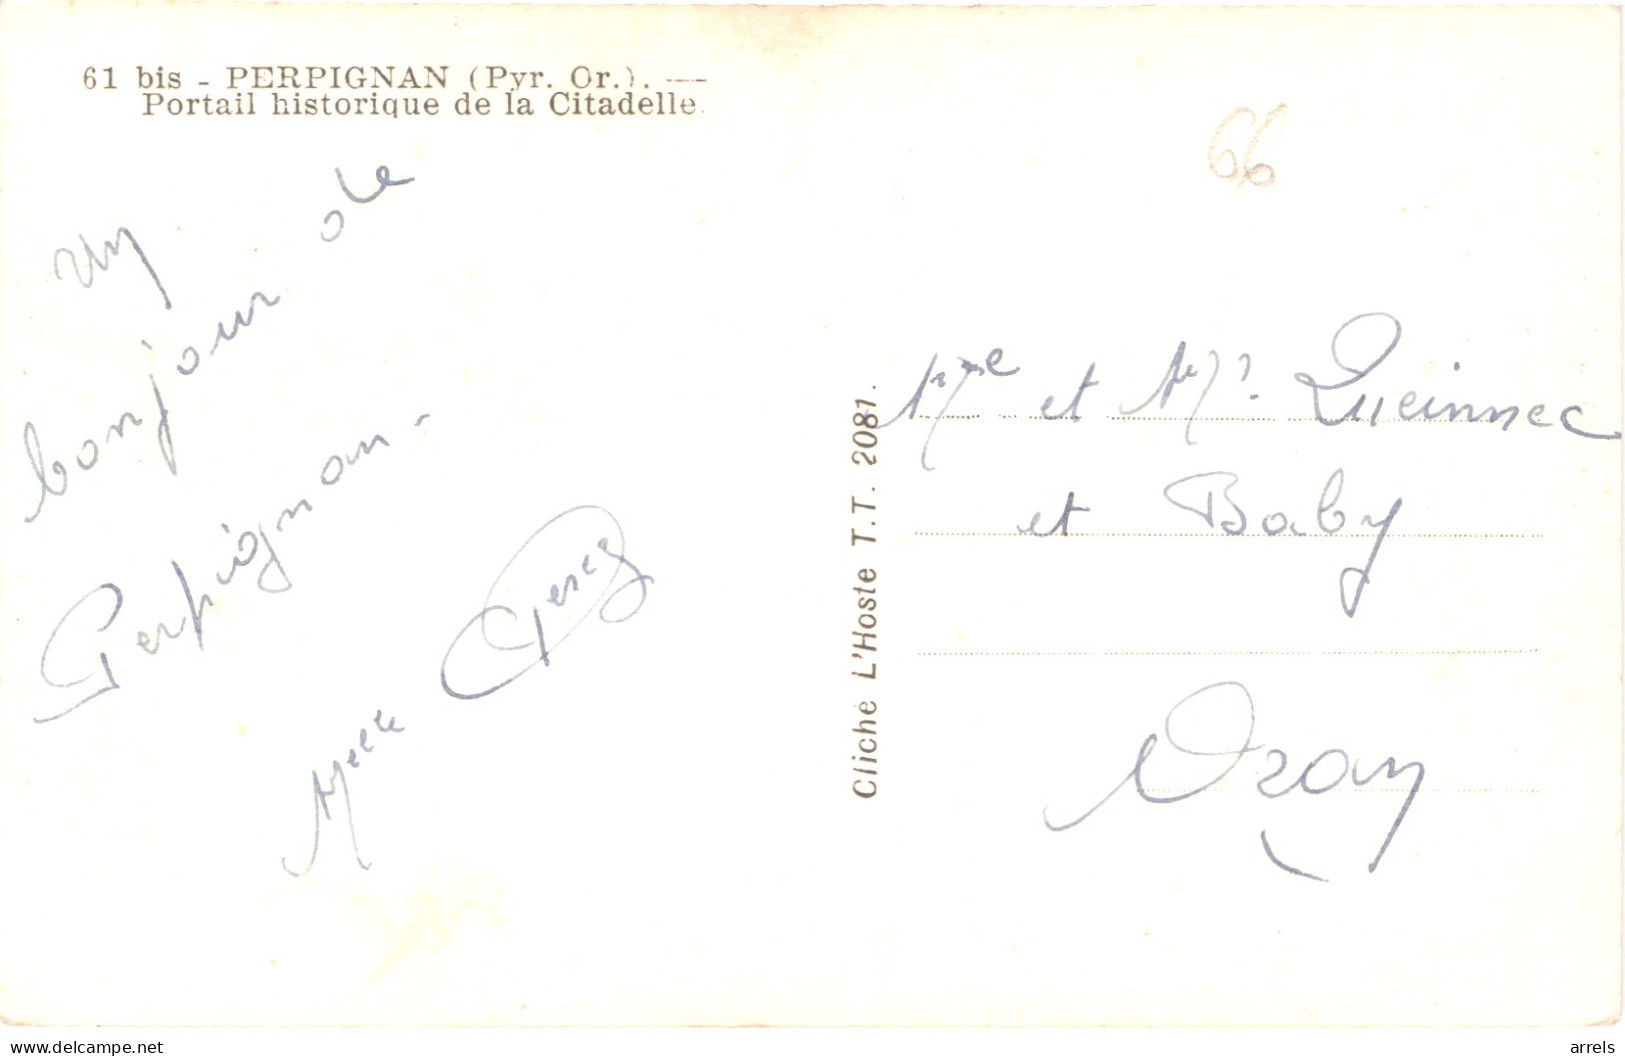 61 bis - PERPIGNAN (Pyr. Or.). —
Portail historique de la Citadelle.
66
Un
bonjour de
Perpignan -
Melle
Cliché L'Hoste T.T. 2081.
Mme et Mr. Queinnec
et Baby
Oran
delcampe.net
arrels